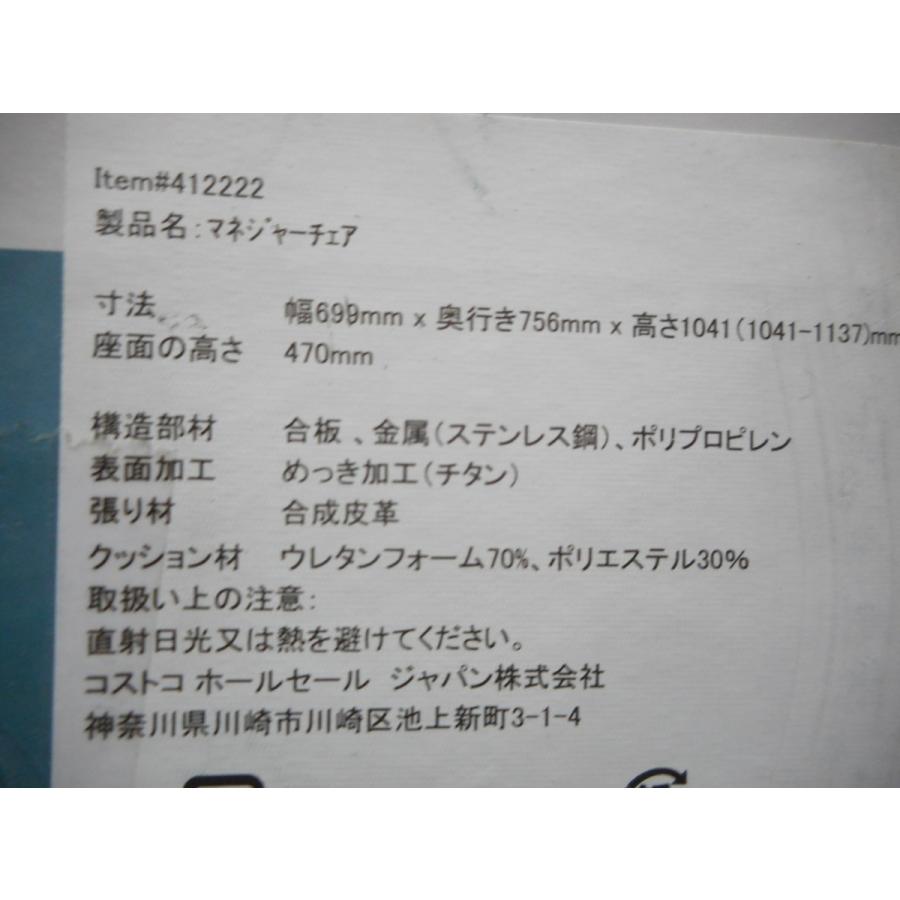 Item#412222
製品名:マネジャーチェア
寸法 幅699mm x 奥行き756mm x 高さ1041(1041-1137)mm
座面の高さ 470mm
構造部材 合板、金属(ステンレス鋼)、ポリプロピレン
表面加工 めっき加工(チタン)
張り材 合成皮革
クッション材 ウレタンフォーム70%、ポリエステル30%
取扱い上の注意:
直射日光又は熱を避けてください。
コストコ ホールセール ジャパン株式会社
神奈川県川崎市川崎区池上新町3-1-4